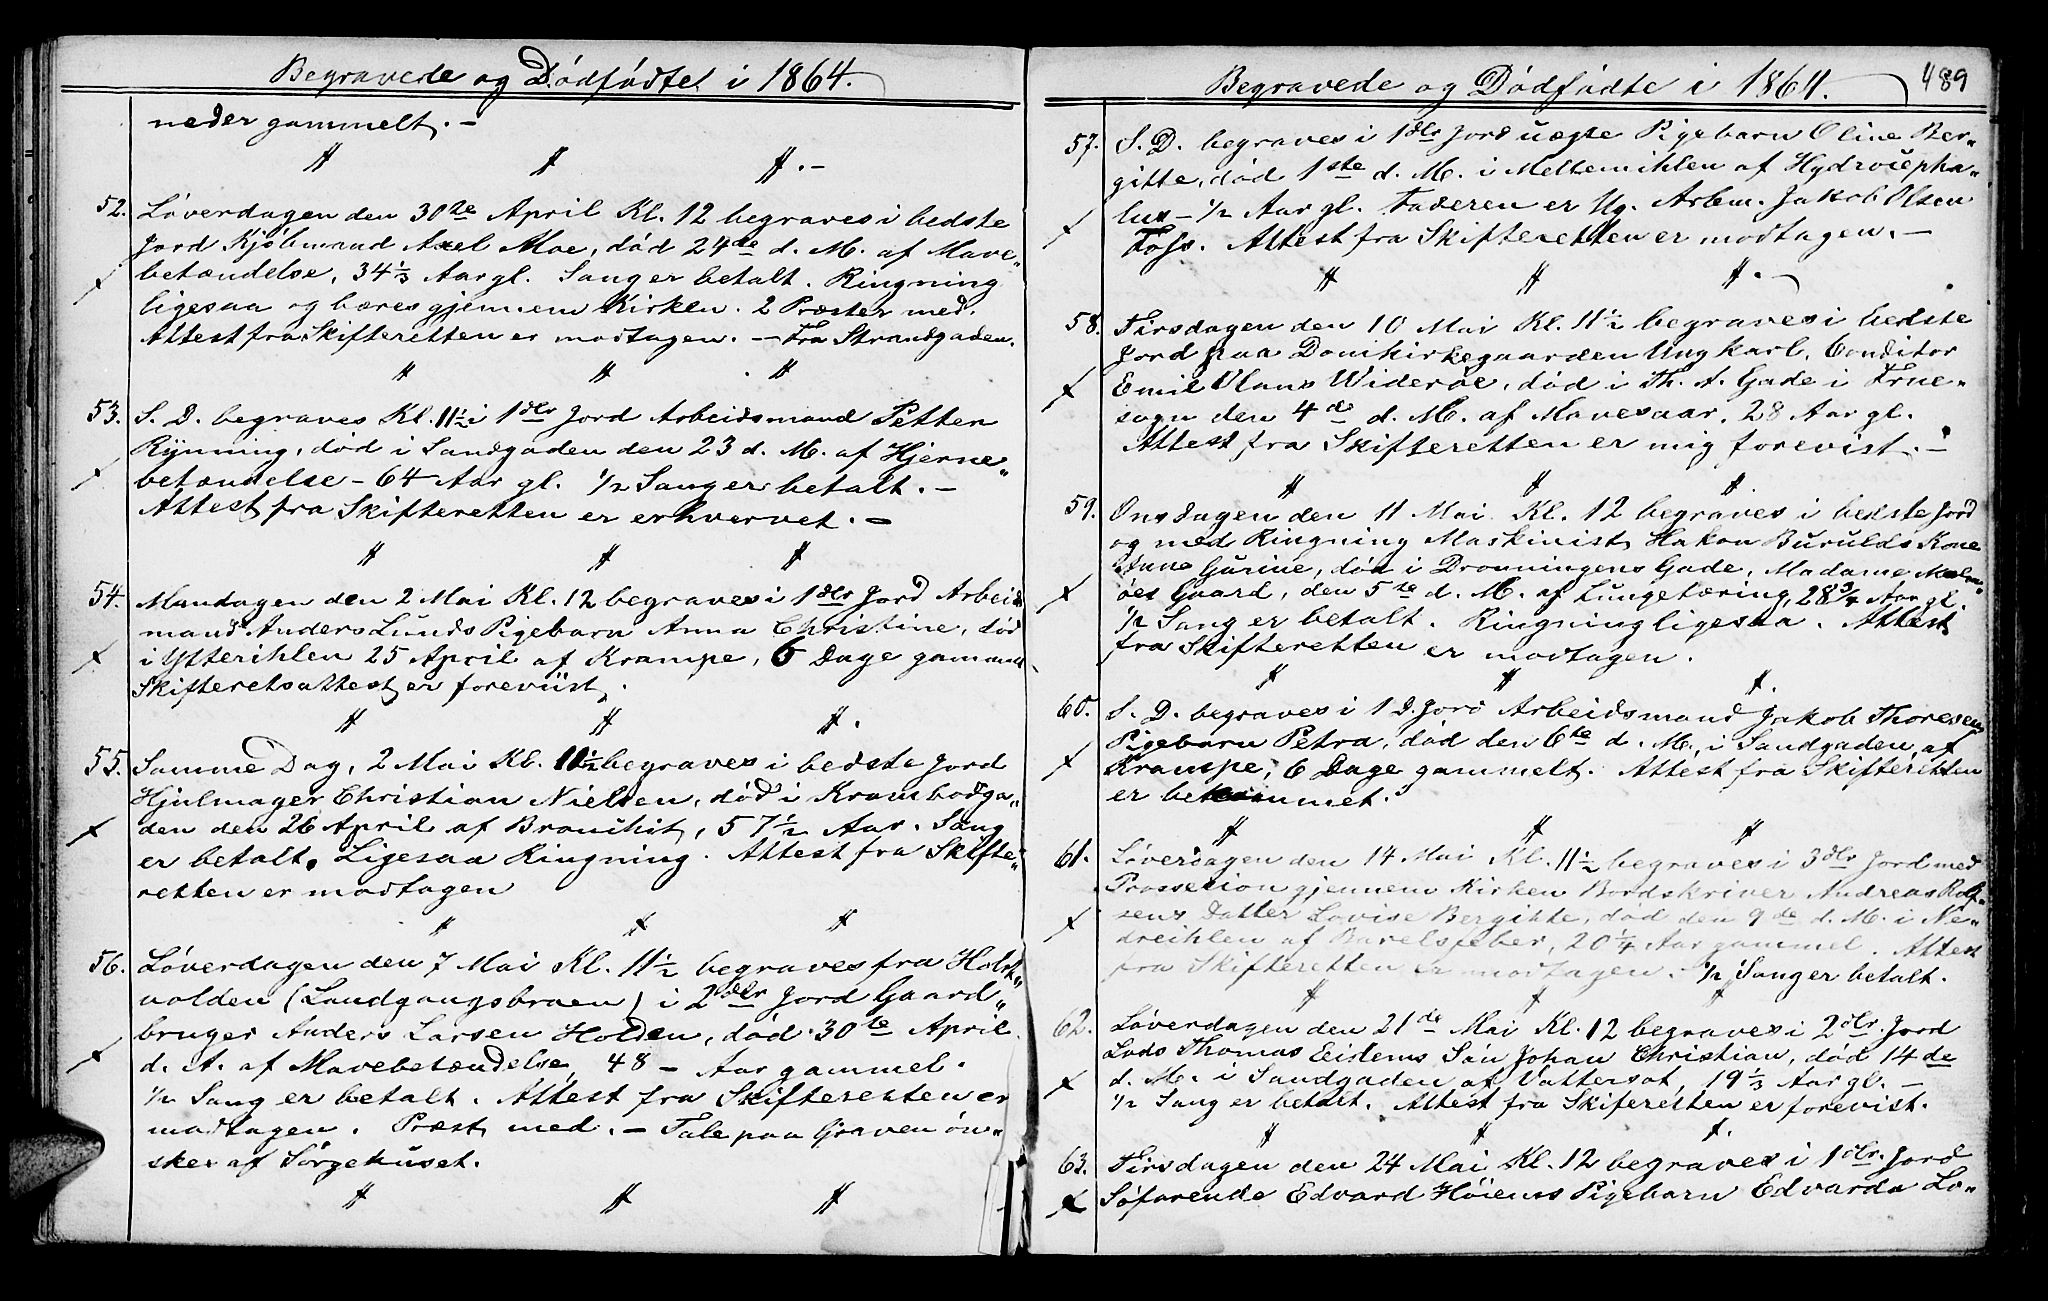 Begravede og Dödfödte i 1864.
neder gammelt. –
52. Löverdagen den 30te April Kl. 12 begraves i bedste
Jord Kjöbmand Axel Moe, död 24de d. M. af Mave„
betændelse, 34 1/3 Aar gl. Sang er betalt. Ringning
ligesaa og bæres gjennem Kirken. 2 Præster med.
Attest fra Skifteretten er modtagen. – Fra Strandgaden.
53. S. D. begraves Kl. 11 1/2 i 1 dlr Jord Arbeidsmand Petter
Rynning, död i Sandgaden den 23 d. M. af Hjerne„
betændelse – 64 Aar gl. 1/2 Sang er betalt. –
Attest fra Skifteretten er erhvervet. –
54. Mandagen den 2 Mai Kl. 12 begraves i 1 dlr Jord Arbeids
mand Anders Lunds Pigebarn Anna Christine, död
i Ytterihlen 25 April af Krampe, 6 Dage gammel
Skifteretsattest er foreviist.
55. Samme Dag, 2 Mai Kl. 11 1/2 begraves i bedste Jord
Hjulmager Christian Nielsen, död i Krambodga„
den den 26 April af Bronchit, 57 1/2 Aar. Sang
er betalt. Ligesaa Ringning. Attest fra Skifte„
retten er modtagen
56. Löverdagen den 7 Mai Kl. 11 1/2 begraves fra Holsk„
volden (Landgangsbroen) i 2 dlr Jord Gaard„
bruger Anders Larsen Holden, död 30te April
d. A. af Mavebetændelse, 48 – Aar gammel.
1/2 Sang er betalt. Attest fra Skifteretten er
modtagen. Præst med. – Tale paa Graven ön„
skes af Sörgehuset.
Begravede og Dödfödte i 1864. 489
57. S. D. begraves i 1 dlr Jord uægte Pigebarn Oline Ber„
gitte, död 1ste d. M. i Mellemihlen af Hydrocepha„
lus – 1/2 Aar gl. Faderen er Ug. Arbm. Jakob Olsen
Foss. Attest fra Skifteretten er modtagen. –
58. Tirsdagen den 10 Mai Kl. 11 1/2 begraves i bedste
Jord paa Domkirkegaarden Ungkarl, Conditor
Emil Olaus Wideröe, död i Th. A. Gade i Frue„
sogn den 4de d. M. af Mavesaar, 28 Aar gl.
Attest fra Skifteretten er mig forevist. –
59. Onsdagen den 11 Mai Kl. 12 begraves i bedste Jord
og med Ringning Maskinist Hakon Burulds Kone
Anne Gurine, död i Dronningens Gade, Madame
öes Gaard, den 5te d. M. af Lungetæring, 28 3/4 Aar gl.
1/2 Sang er betalt. Ringning ligesaa. Attest
fra Skifteretten er modtagen.
60. S. D. begraves i 1 D. Jord Arbeidsmand Jakob Thoresens
Pigebarn Petra, död den 6te d. M. i Sandgaden af
Krampe, 6 Dage gammelt. Attest fra Skifteretten
er bekommet.
61. Löverdagen den 14 Mai Kl. 11 1/2 begraves i 3 dlr Jord med
Prossesion gjennem Kirken Bordskriver Andreas Rolf„
sens Datter Lovise Bergitte, död den 9de d. M. i Ne„
dreihlen af Barselsfeber, 20 1/4 Aar gammel. Attest
fra Skifteretten er modtagen. 1/2 Sang er betalt.
62. Löverdagen den 21de Mai Kl. 12 begraves i 2 dlr. Jord
Lods Thomas Eidems Sön Johan Christian, död 14de
d. M. i Sandgaden af Vattersot, 19 1/3 Aar gl. –
1/2 Sang er betalt. Attest fra Skifteretten er forevist.
63. Tirsdagen den 24 Mai Kl. 12 begraves i 1 dlr. Jord
Söfarende Edvard Höiens Pigebarn Edvarda Lo„